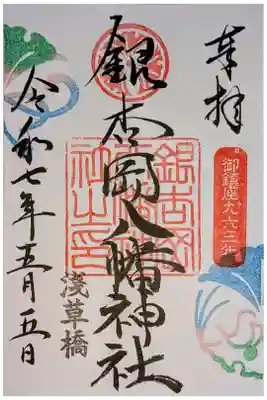 奉拝
御鎮座九六三年
銀杏岡八幡神社
浅草橋
令和七年五月五日